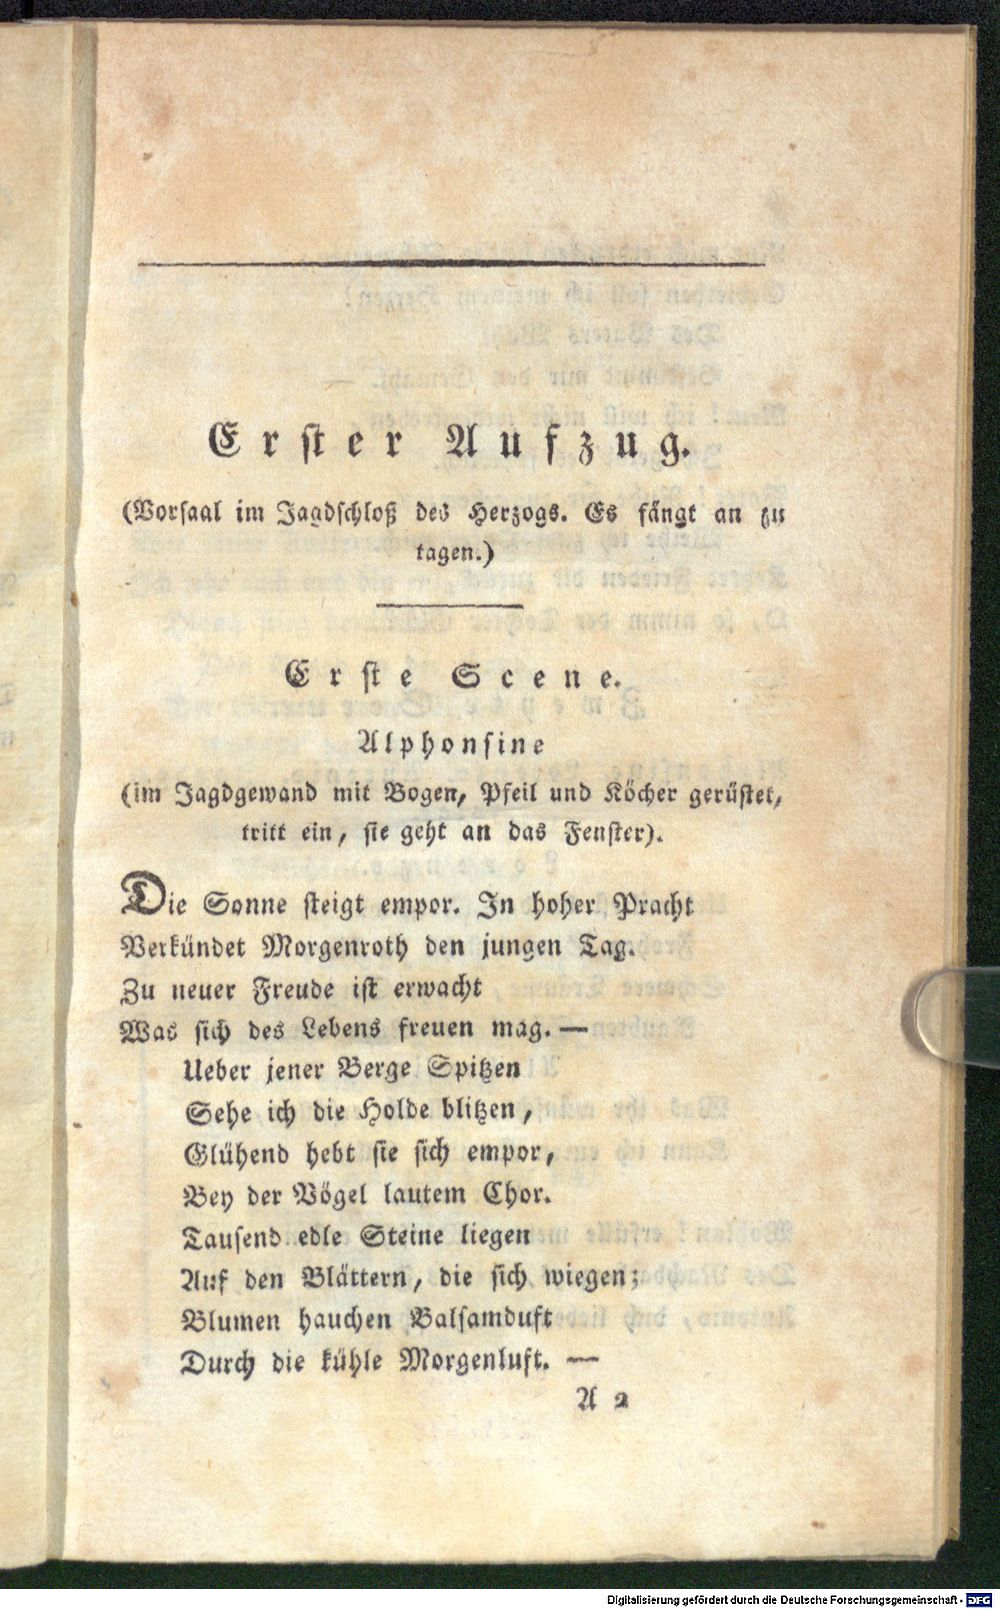 Erster Aufzug.
(Vorsaal im Jagdschloß des Herzogs. Es fängt an zu
tagen.)
Erste Scene.
Alphonsine
(im Jagdgewand mit Bogen, Pfeil und Köcher gerüstet,
tritt ein, sie geht an das Fenster).
Die Sonne steigt empor. In hoher Pracht
Verkündet Morgenroth den jungen Tag.
Zu neuer Freude ist erwacht
Was sich des Lebens freuen mag. —
Ueber jener Berge Spitzen
Sehe ich die Holde blitzen,
Glühend hebt sie sich empor,
Bey der Vögel lautem Chor.
Tausend edle Steine liegen
Auf den Blättern, die sich wiegen;
Blumen hauchen Balsamduft
Durch die kühle Morgenluft. —
A 2
Digitalisierung gefördert durch die Deutsche Forschungsgemeinschaft - DFG